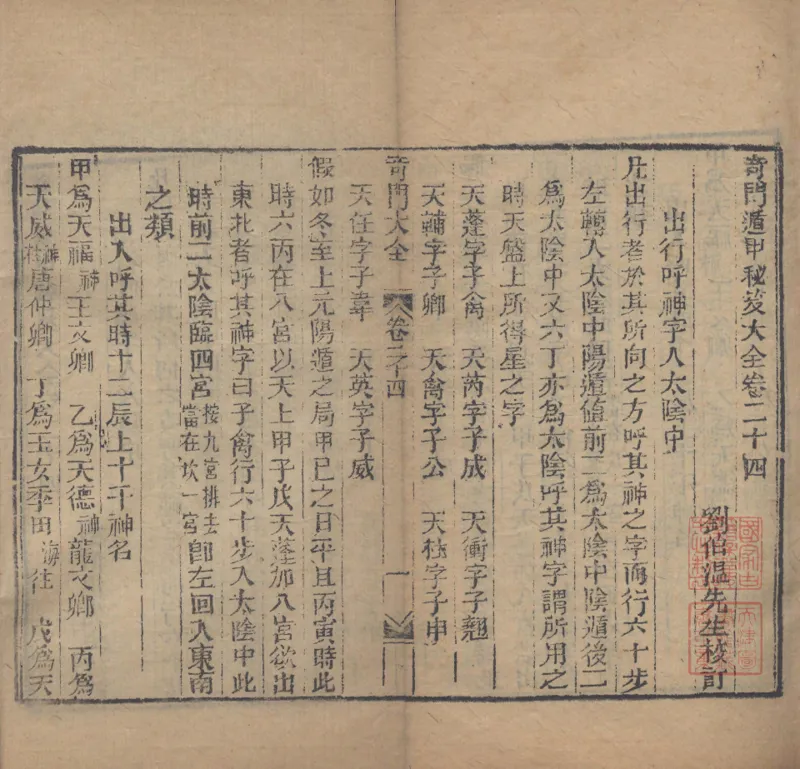 奇門遁甲秘笈大全卷二十四
劉伯溫先生校訂
出行呼神字入太陰中
凡出行者於其所向之方呼其神之字而行六十步
左轉入太陰中陽遁值前二為太陰中陰遁後二
為太陰中又六丁亦為太陰呼其神字謂所用之
時天盤上所得星之字
天蓬字子禽 天芮字子成 天衝字子翹
天輔字子卿 天禽字子公 天柱字子申
奇門大全 卷二十四 一
天任字子韋 天英字子威
假如冬至上元陽遁之局甲己之日平旦丙寅時此
時六丙在八宮以天上甲子戊天蓬加八宮欲出
東北者呼其神字曰子禽行六十步入太陰中此
時前二太陰臨四宮按九宮排去當在坎一宮即左回入東南
之類
出入呼其時十二辰上十干神名
甲為天福神王文卿 乙為天德神龍文卿 丙為
天威神唐仲卿 丁為玉女季田 往 戊為天